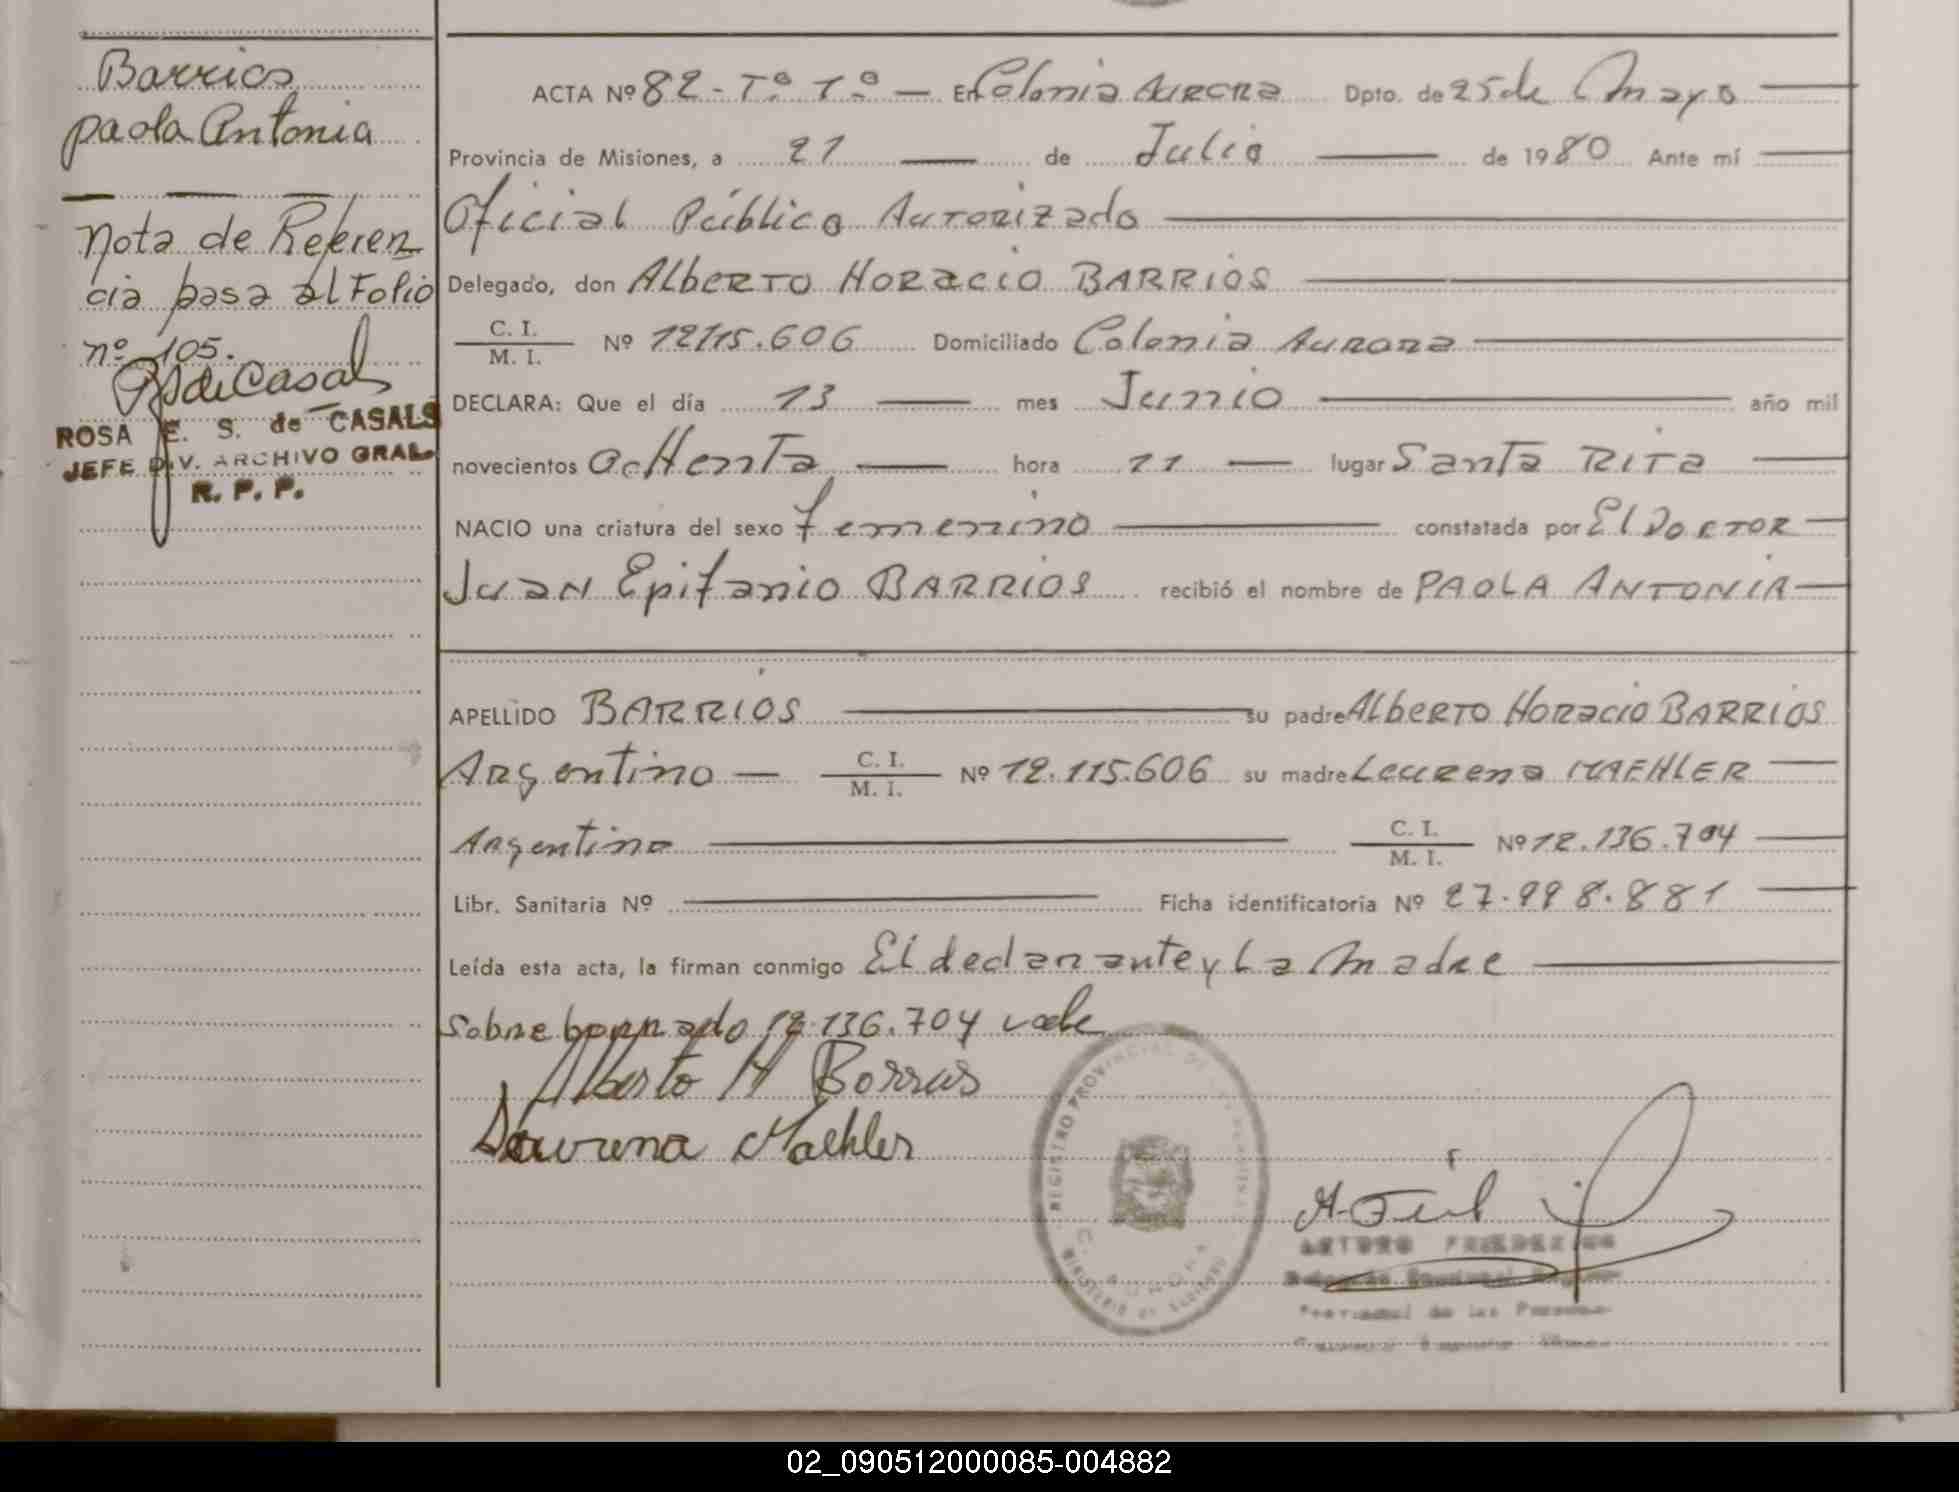 Barrios
paola Antonia
Nota de Referen
cia pasa al Folio
nº 105.
RSdeCasal
ROSA E. S. de CASALS
JEFE DIV. ARCHIVO GRAL.
R. P. P.
ACTA Nº 82-Tº 1º - En Colonia Aurora Dpto. de 25 de Mayo
Provincia de Misiones, a 21 de Julio de 1980 Ante mí
Oficial Público Autorizado
Delegado, don Alberto Horacio BARRIOS
C. I.
M. I. Nº 12115.606 Domiciliado Colonia Aurora
DECLARA: Que el día 13 mes Junio año mil
novecientos ochenta hora 11 lugar Santa Rita
NACIO una criatura del sexo femenino constatada por El Doctor
Juan Epifanio BARRIOS recibió el nombre de PAOLA ANTONIA
APELLIDO BARRIOS su padre Alberto Horacio BARRIOS
Argentino C. I.
M. I. Nº 12.115.606 su madre Laurena MAEHLER
Argentina C. I.
M. I. Nº 12.136.704
Libr. Sanitaria Nº Ficha identificatoria Nº 27.998.881
Leída esta acta, la firman conmigo El declarante y La Madre
Sobreborrado 12.136.704 vale
Alberto H Borrius
Laurena Maehler
REGISTRO PROVINCIAL DE LAS PERSONAS
C. AURORA
MINISTERIO DE GOBIERNO
ARTURO
02_090512000085-004882